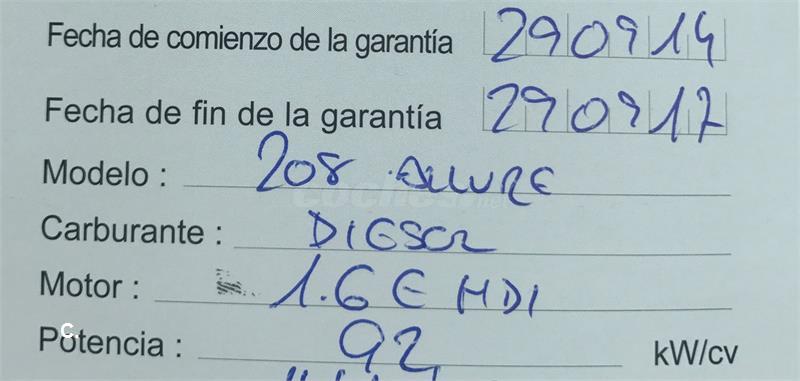 Fecha de comienzo de la garantía 290914
Fecha de fin de la garantía 290917
Modelo : 208 ALLURE
Carburante : DIESEL
Motor : 1.6 E HDI
Potencia : 92 kW/cv